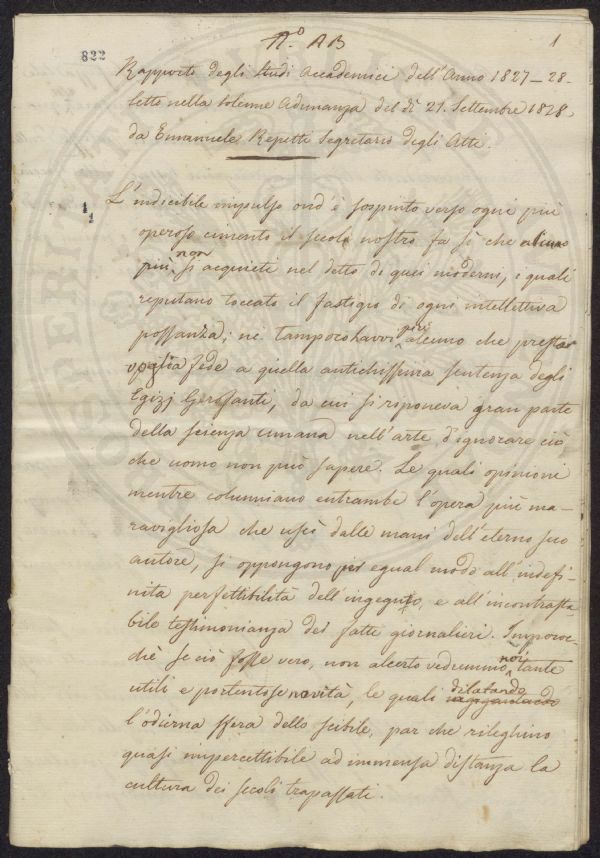 N.o AB
1
822
Rapporto degli Studi Accademici dell'Anno 1827_28.
letto nella solenne Adunanza del dì 21. Settembre 1828.
da Emanuele Repetti Segretario degli Atti.
1
1
L'indicibile impulso ond'è sospinto verso ogni più
operoso cimento il secolo nostro fa sì che alcuno
più non si acquieti nel detto di quei moderni, i quali
reputano toccato il fastigio di ogni intellettiva
possanza; nè tampoco havvi più alcuno che prestar
voglia fede a quella antichissima sentenza degli
Egizj Gerofanti, da cui si riponeva gran parte
della scienza umana nell'arte d'ignorare ciò
che uomo non può sapere. Le quali opinioni
mentre calunniano entrambe l'opera più ma-
ravigliosa che uscì dalle mani dell'eterno suo
autore, si oppongono in egual modo all'indefi-
nita perfettibilità dell'ingegno, e all'incontrasta-
bile testimonianza dei fatti giornalieri. Imperoc-
chè se ciò fosse vero, non al certo vedremmo noi tante
utili e portentose novità, le quali dilatando
l'odierna sfera dello scibile, par che rileghino
quasi impercettibile ad immensa distanza la
cultura dei secoli trapassati.